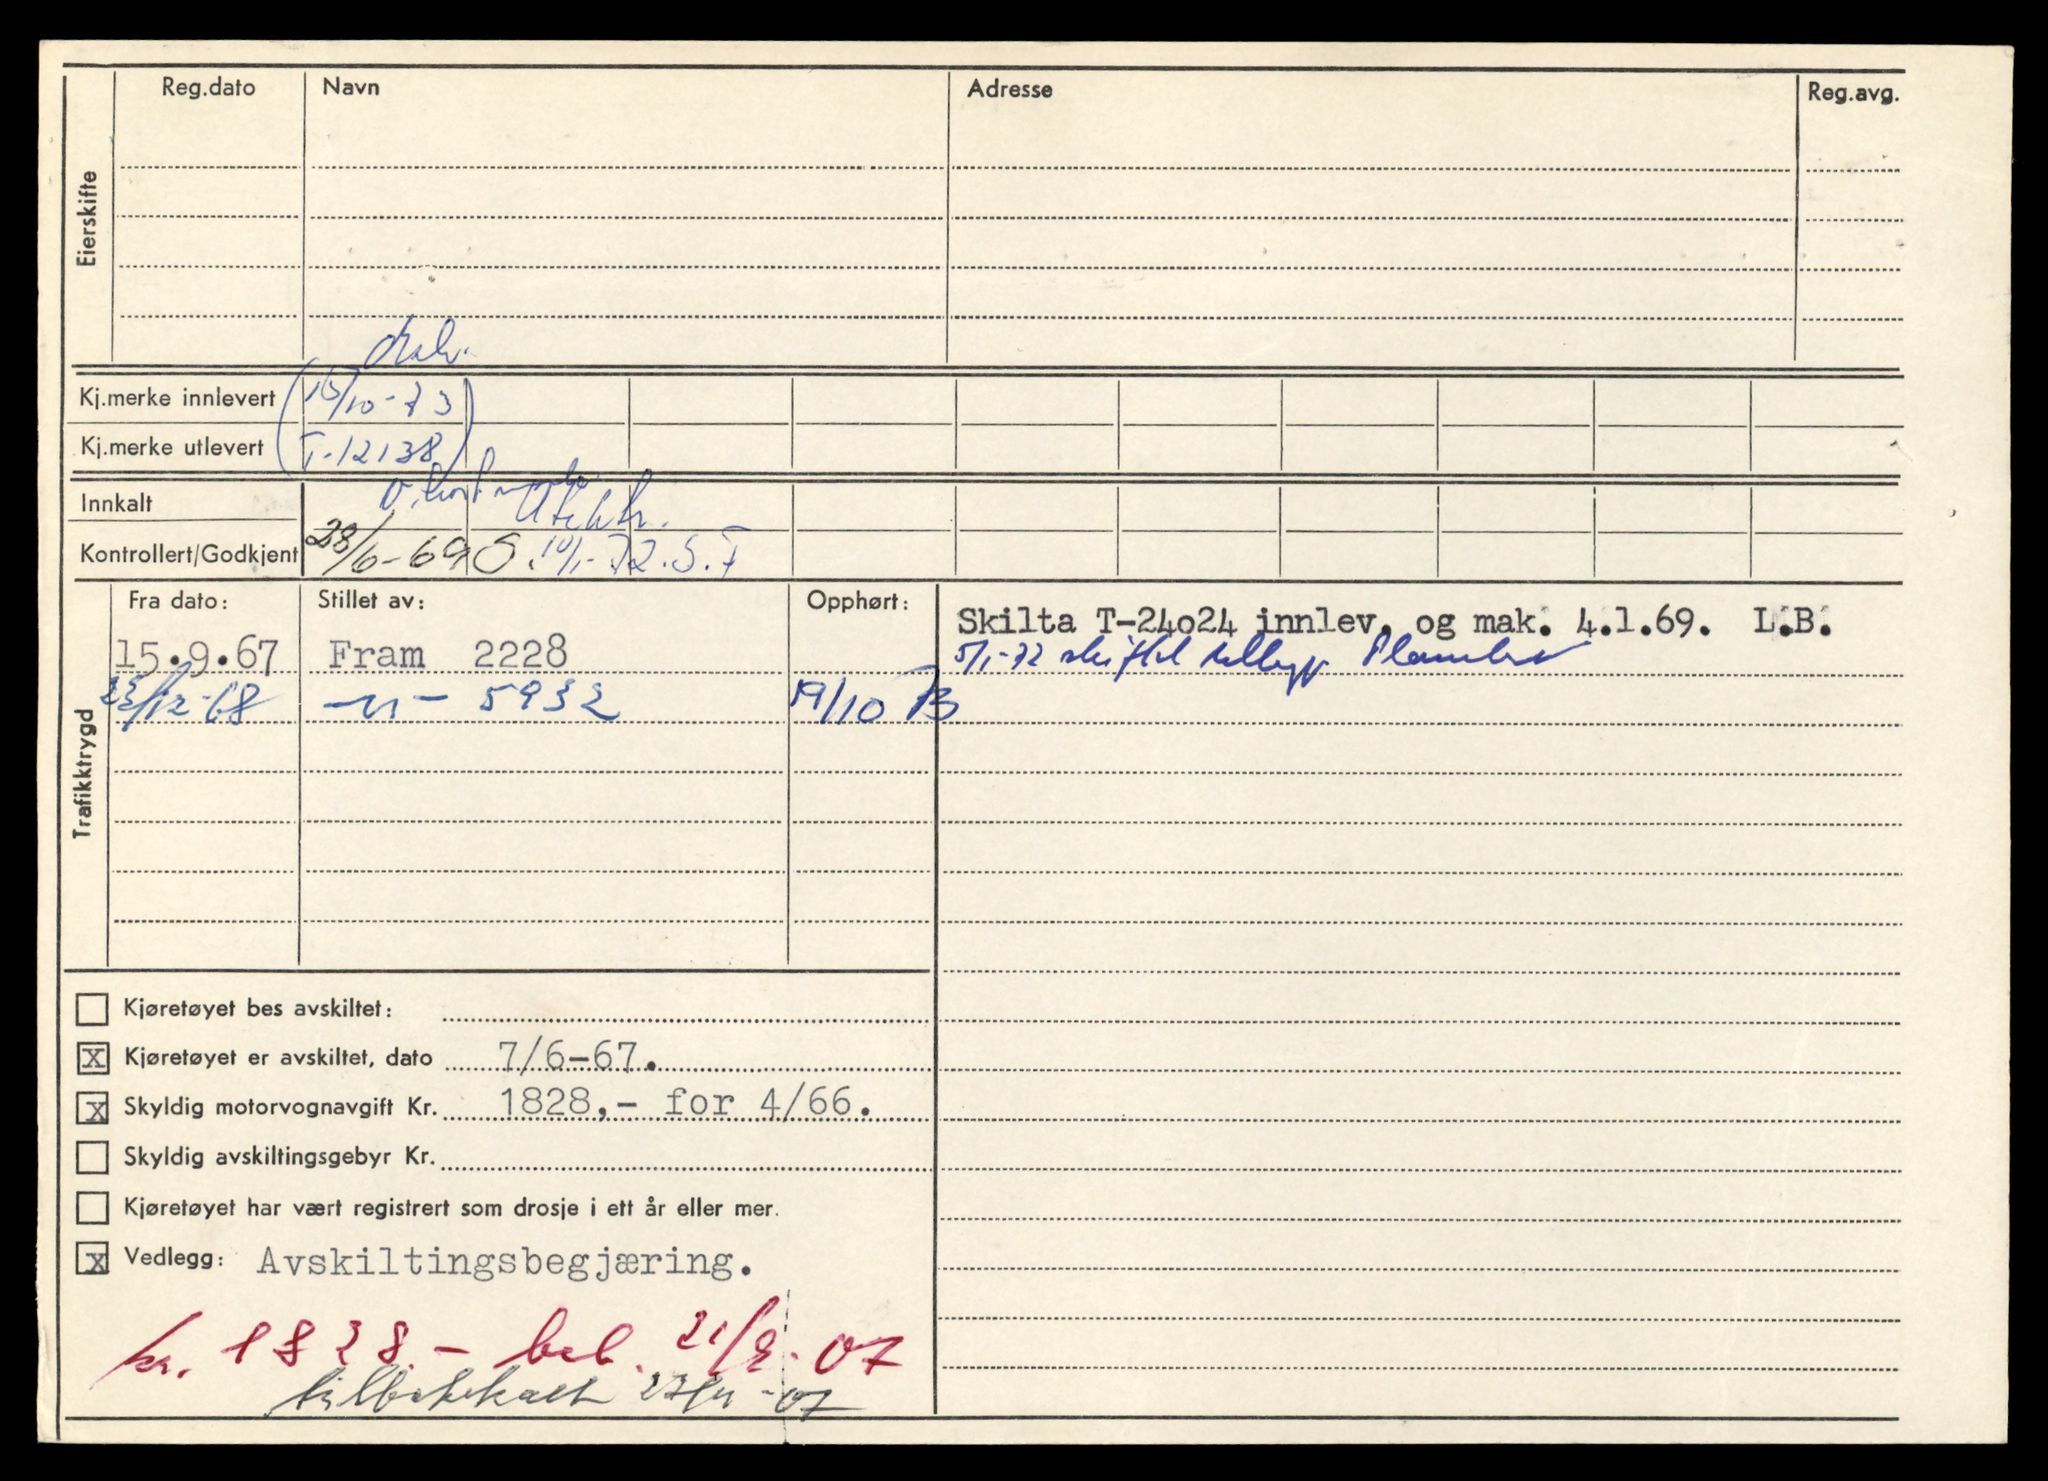 Reg.dato Navn Adresse Reg.avg.
Eierskifte
Kj.merke innlevert 15/10-73
Kj.merke utlevert T-12138
Innkalt Utektr.
Kontrollert/Godkjent 28/6-69 S. 10/1-72. S.F
Trafikktrygd
Fra dato: Stillet av: Opphørt:
15.9.67 Fram 2228
23/12-68 -"- 5932 19/10 73
Skilta T-24o24 innlev. og mak. 4.1.69. L.B.
5/1-72 skiftet
Kjøretøyet bes avskiltet:
x Kjøretøyet er avskiltet, dato 7/6-67.
x Skyldig motorvognavgift Kr. 1828,- for 4/66.
Skyldig avskiltingsgebyr Kr.
Kjøretøyet har vært registrert som drosje i ett år eller mer.
x Vedlegg: Avskiltingsbegjæring.
kr. 1828.- bet. 21/9-67
tilbakekalt 27/11-67